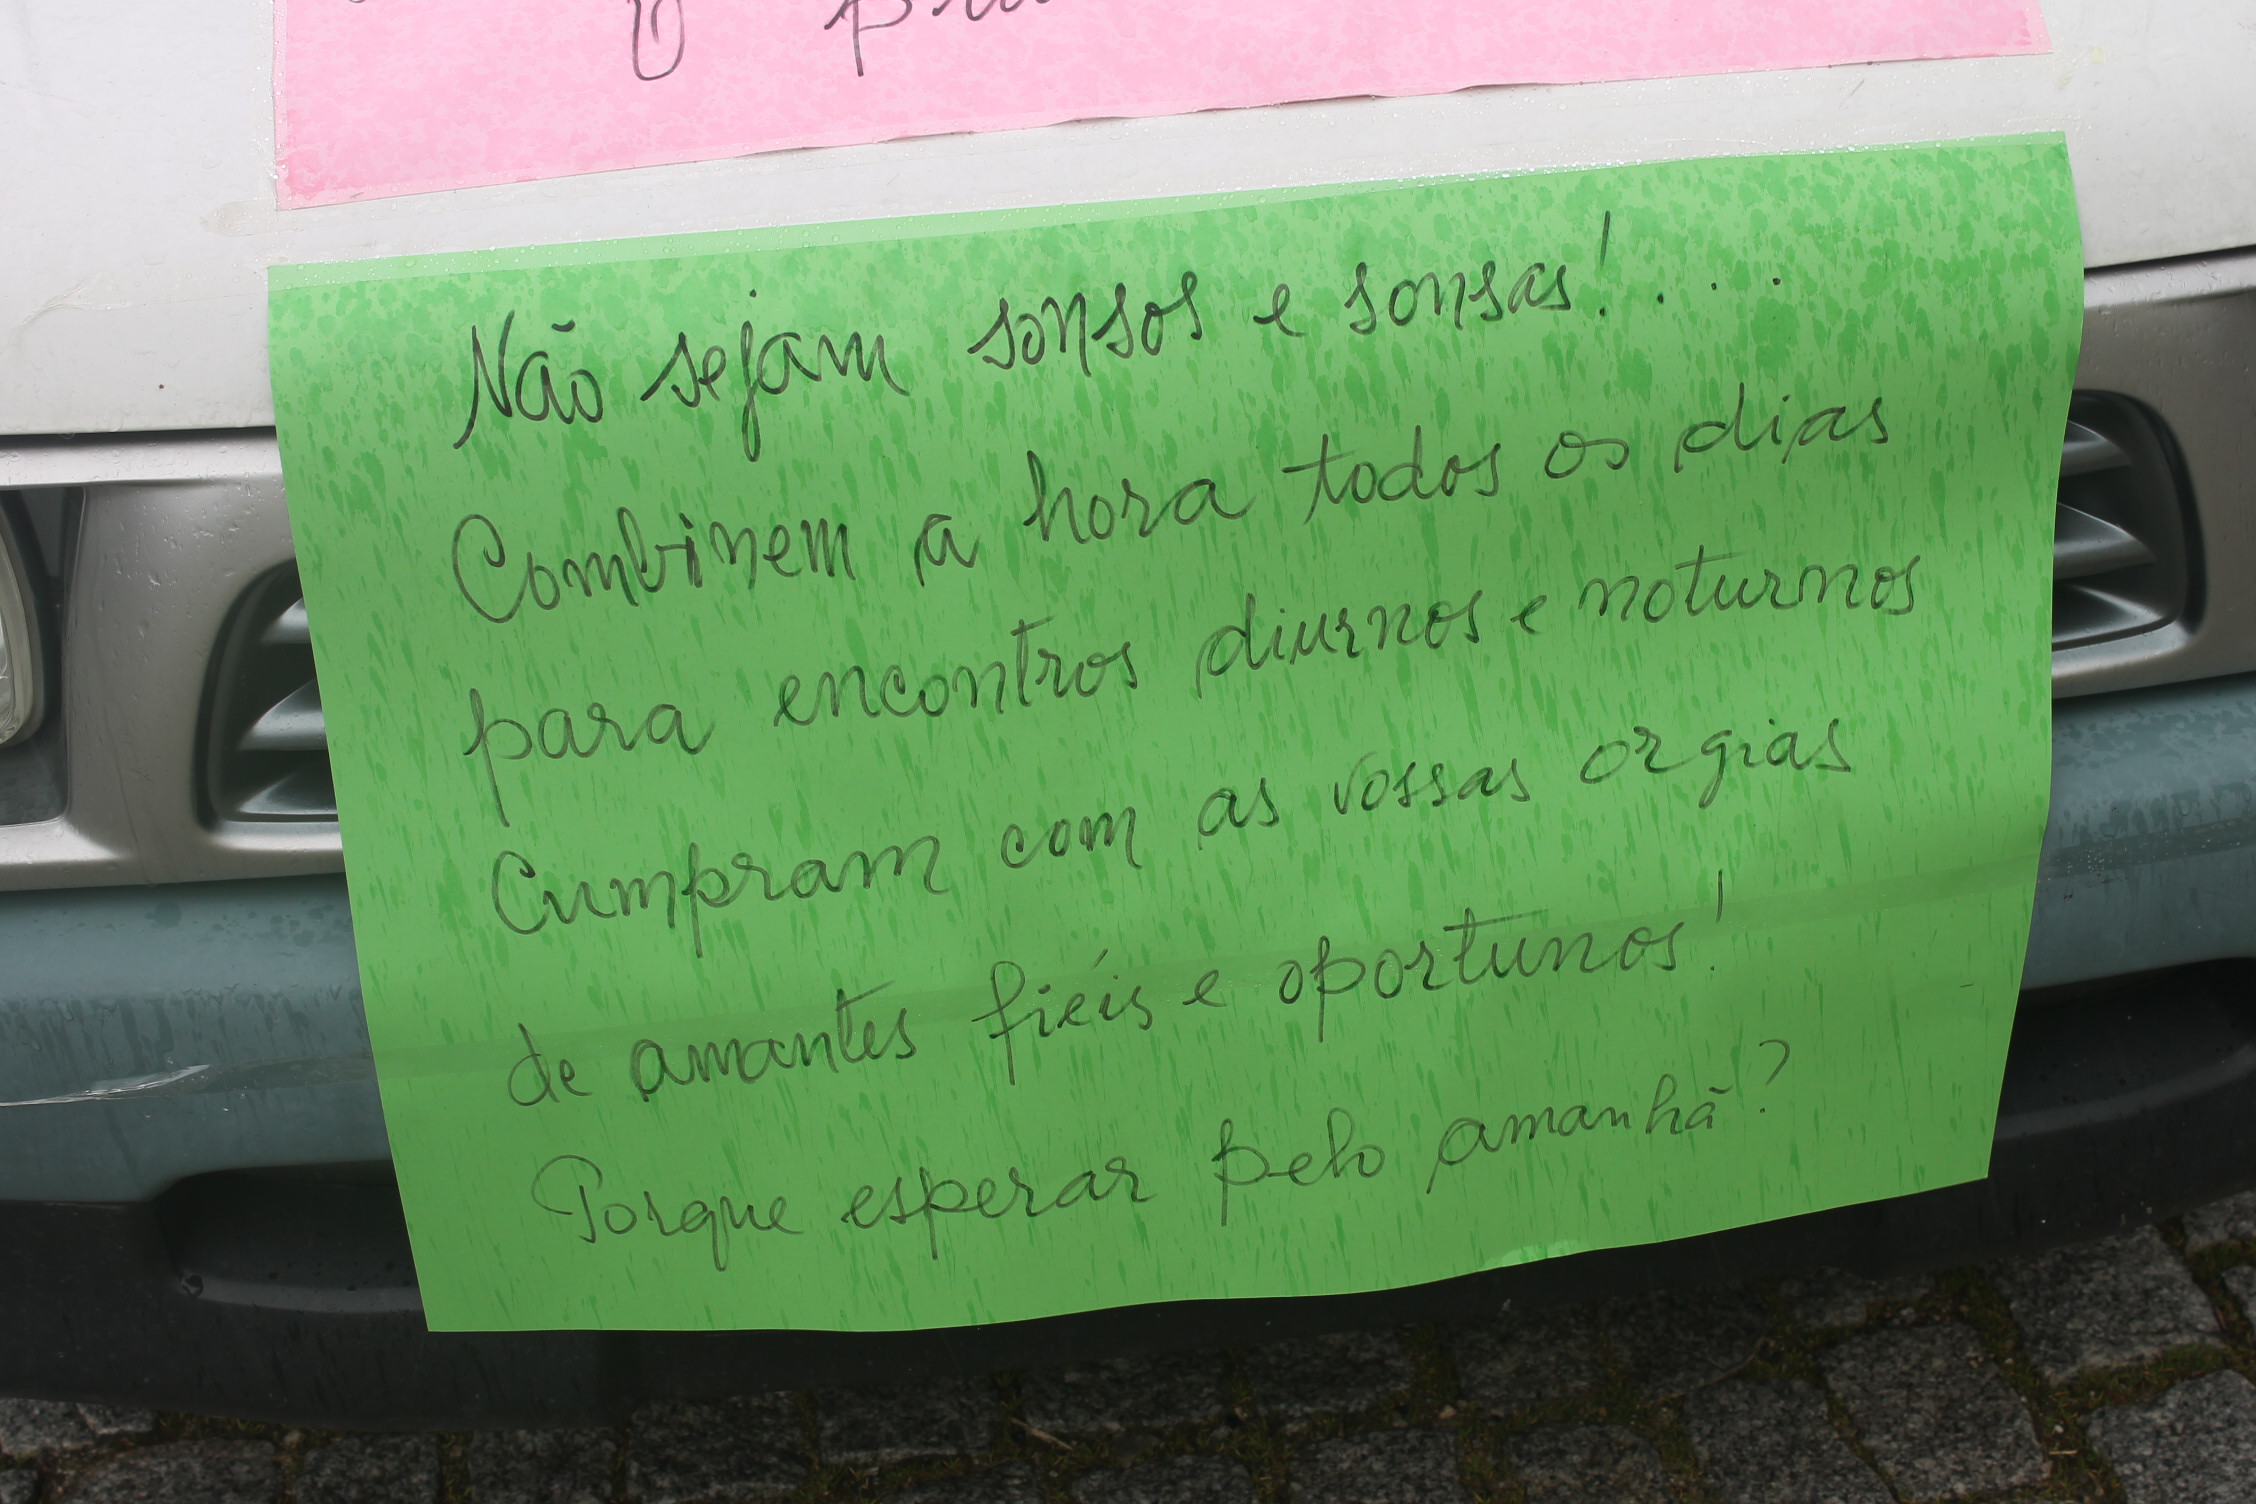 Não sejam sonsos e sonsas!...
Combinem a hora todos os dias
para encontros diurnos e noturnos
Cumpram com as vossas orgias
de amantes fiéis e oportunos!
Porque esperar pelo amanhã?